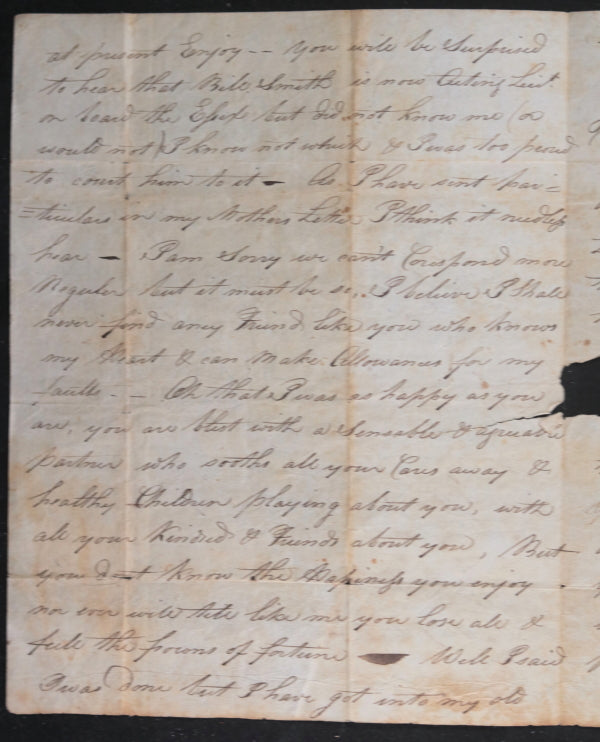 at present Enjoy -- you will be Surprised
to hear that Bill Smith is now Acting Lieut
on board the Essex but did not know me (or
would not) I know not which & I was too proud
to court him to it - As I have sent par=
=ticulars in my Mothers Letter I think it needless
hear - I am Sorry we can't Corespond more
Reguler but it must be so.. I believe I shall
never find aney Friend like you who knows
my Heart & can Make Allowances for my
faults -- Oh that I was as happy as you
are, you are blest with a Senseable & agreeable
partner who sooths all your Cares away &
healthy Children playing about you, with
all your Kindred & Friends about you, But
you don't know the Happiness you enjoy
nor ever will till like me you lose all &
fele the frowns of fortune - Well I said
I was done but I have got into my old